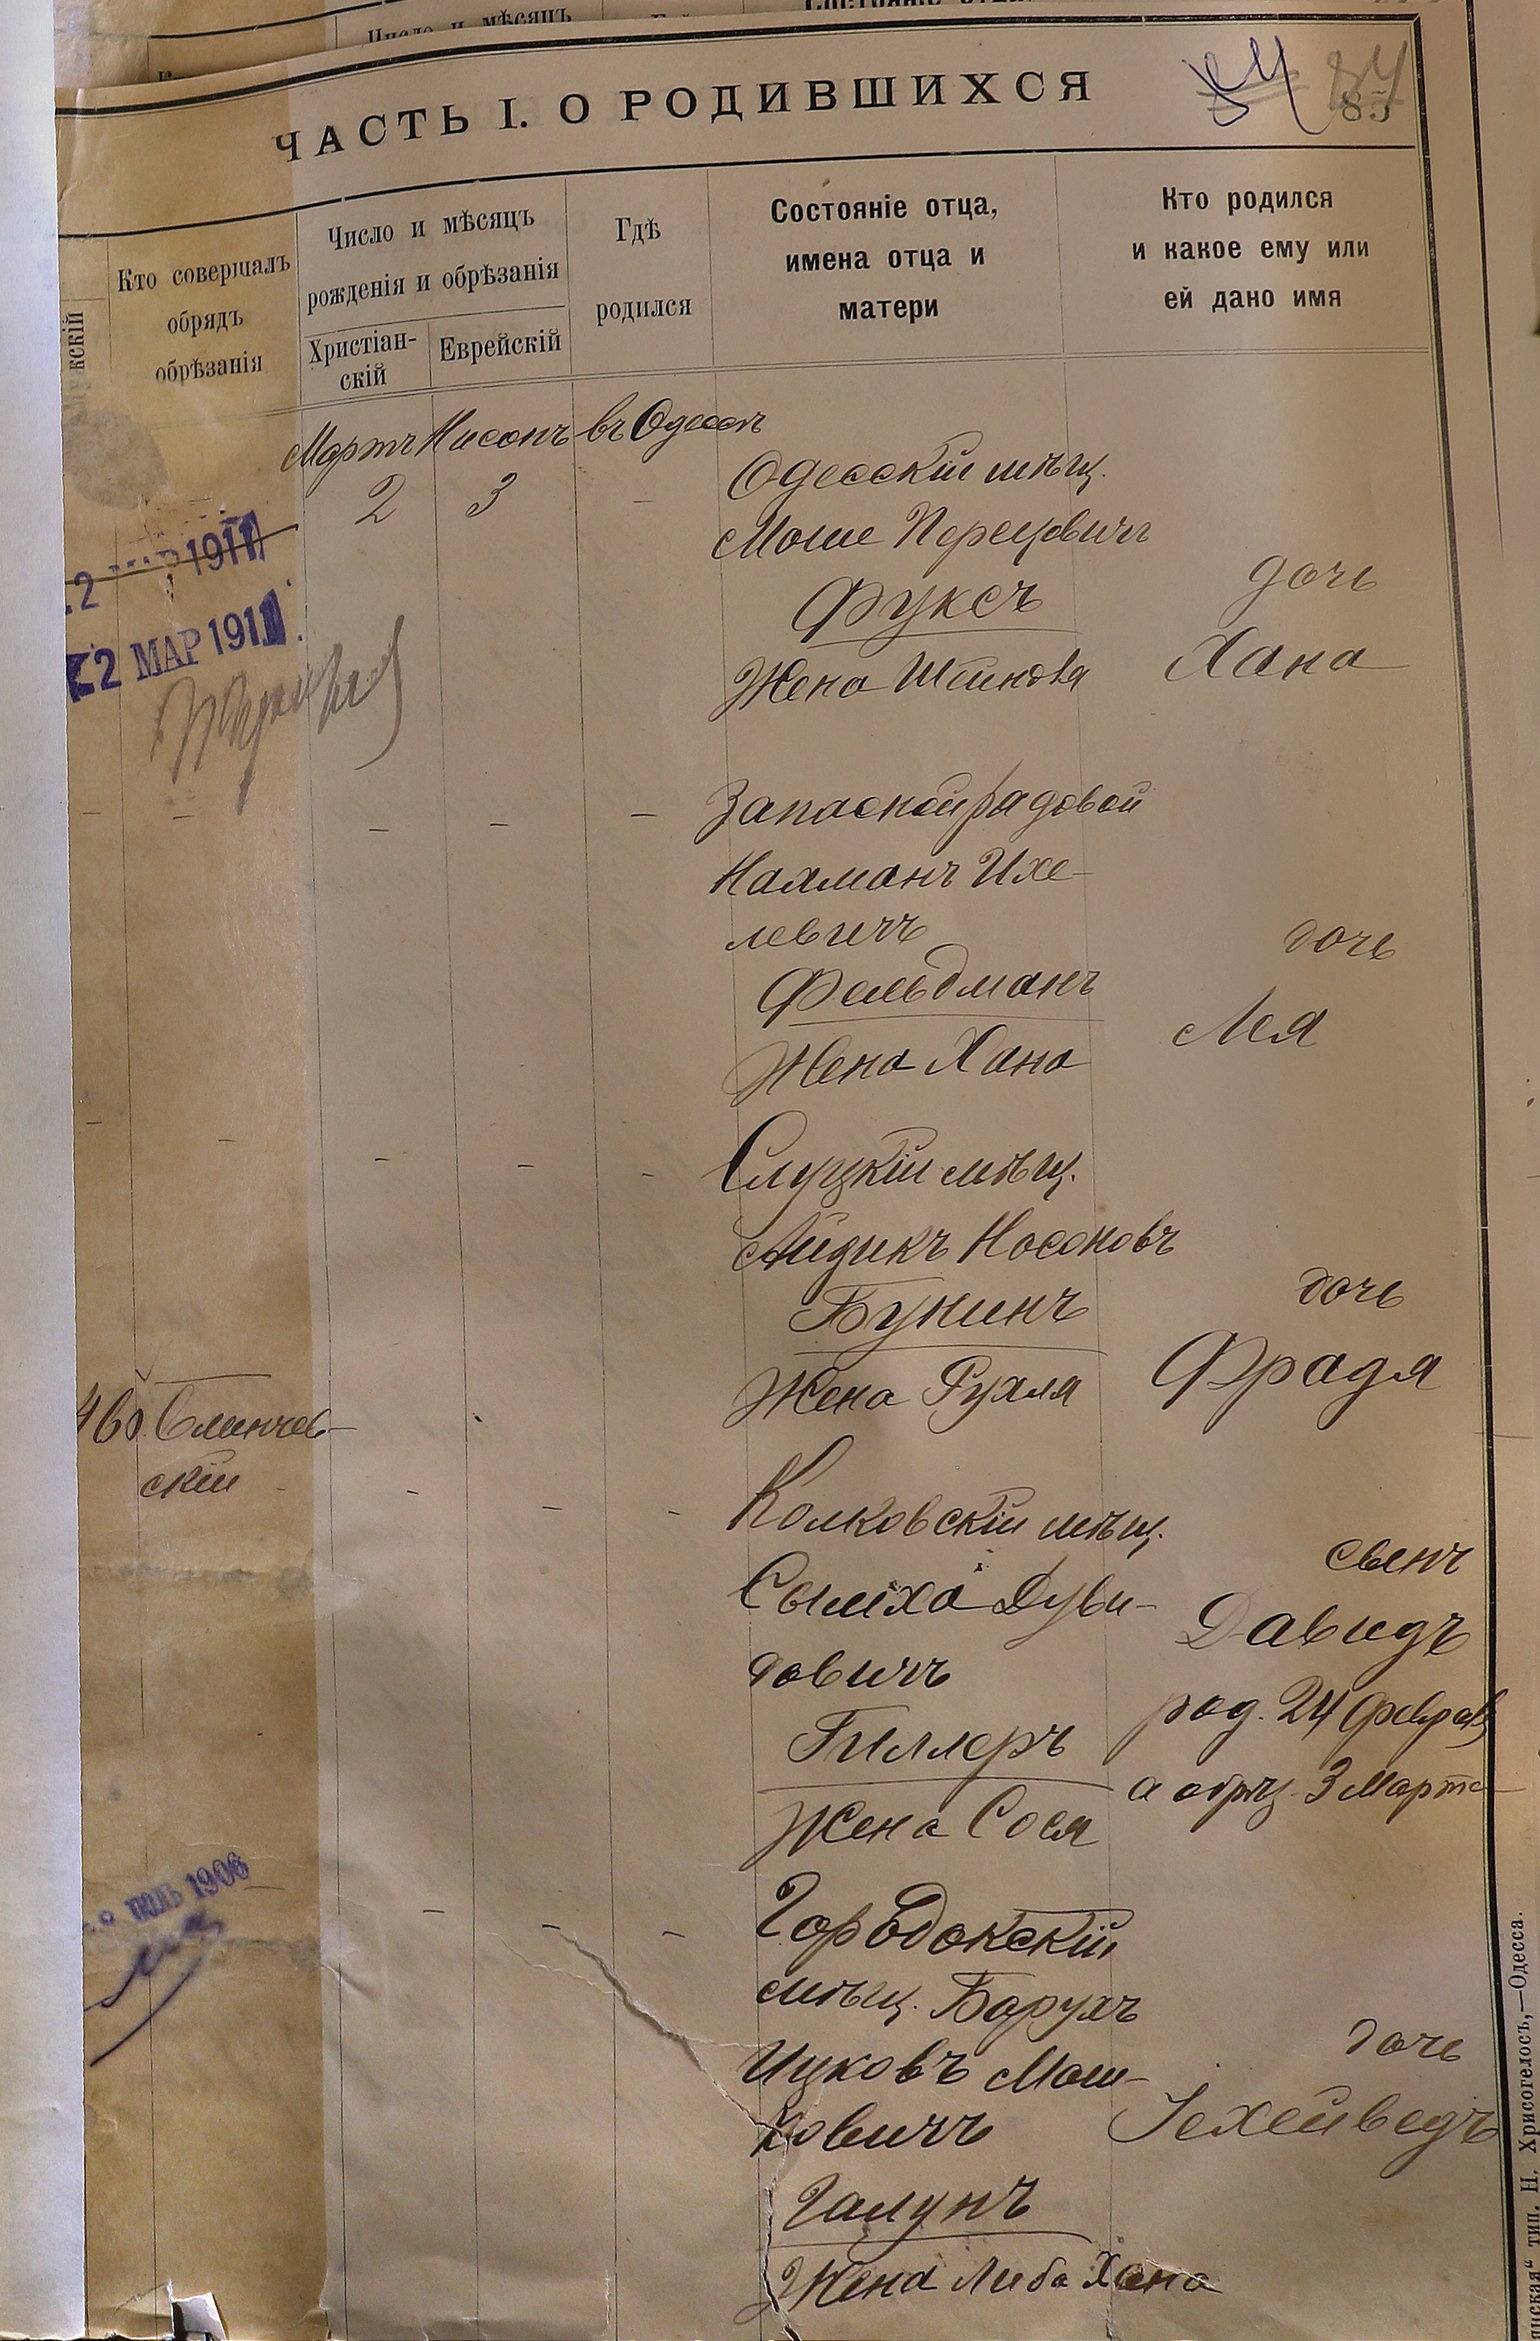 Число и мѣсяцъ
ЧАСТЬ I. О РОДИВШИХСЯ
84 84
85
Кто совершалъ
обрядъ
обрѣзанія
Число и мѣсяцъ
рожденія и обрѣзанія
Христіан-
скій
Еврейскій
Гдѣ
родился
Состояніе отца,
имена отца и
матери
Кто родился
и какое ему или
ей дано имя
Мартъ Нисонъ въ Одессѣ
2 3 -
Одесскій мѣщ.
Моше Перецовичъ
Фуксъ
Жена Шейндля
дочь
Хана
1911
22 МАР 1911
- - - - -
Запасной рядовой
Нахманъ Ихе-
левичъ
Фельдманъ
Жена Хана
дочь
Лея
- - - - -
Слуцкій мѣщ.
АйзикъНосоновъ
Бунинъ
Жена Рухля
дочь
Фрадя
460. Блинчев-
скій
- - -
Колковскій мѣщ.
Сымха Дуви-
довичъ
Гиллеръ
Жена Сося
сынъ
Давидъ
род. 24 Февраля
а обрѣз. 3 Марта
1906
- - -
Городокскій
мѣщ. Борухъ
Ицковъ Мош-
ковичъ
Галунъ
Жена Либа Хана
дочь
Іехейведъ
тип. Н. Хрисогелосъ,—Одесса.